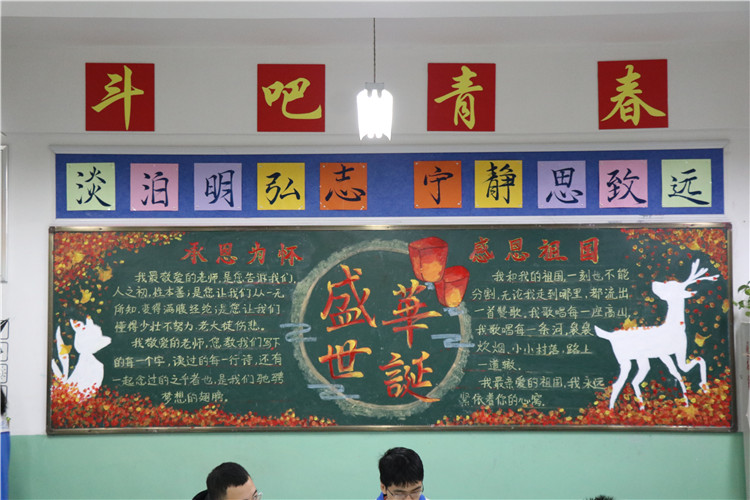 斗吧青春
淡泊明弘志 宁静思致远
承恩为怀
我最敬爱的老师,是您告诉我们,
人之初,性本善;是您让我们从一无
所知,变得满腹经纶;是您让我们
懂得少壮不努力,老大徒伤悲。
我敬爱的老师,您教我们写下
的每一个字,读过的每一行诗,还有
一起念过的之乎者也,是我们驰骋
梦想的翅膀。
盛世
華誕
感恩祖国
我和我的祖国,一刻也不能
分割,无论我走到哪里,都流出
一首赞歌。我歌唱每一座高山,
我歌唱每一条河,袅袅
炊烟,小小村落,路上
一道辙。
我最亲爱的祖国,我永远
紧依着你的心窝。